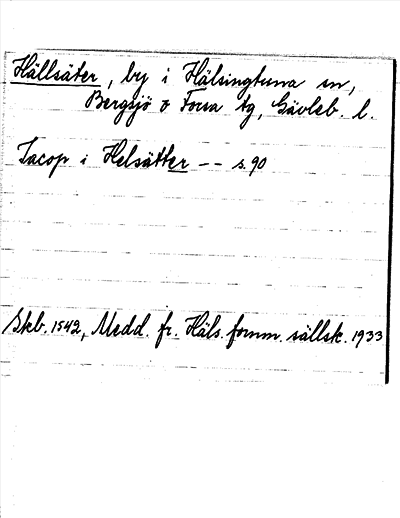 Hällsäter, by i Hälsingtuna sn,
Bergsjö o Forsa tg, Gävleb. l.
Jacop i Helsätter -- s. 90
Skb. 1542, Medd. fr. Häls. fornm. sällsk. 1933